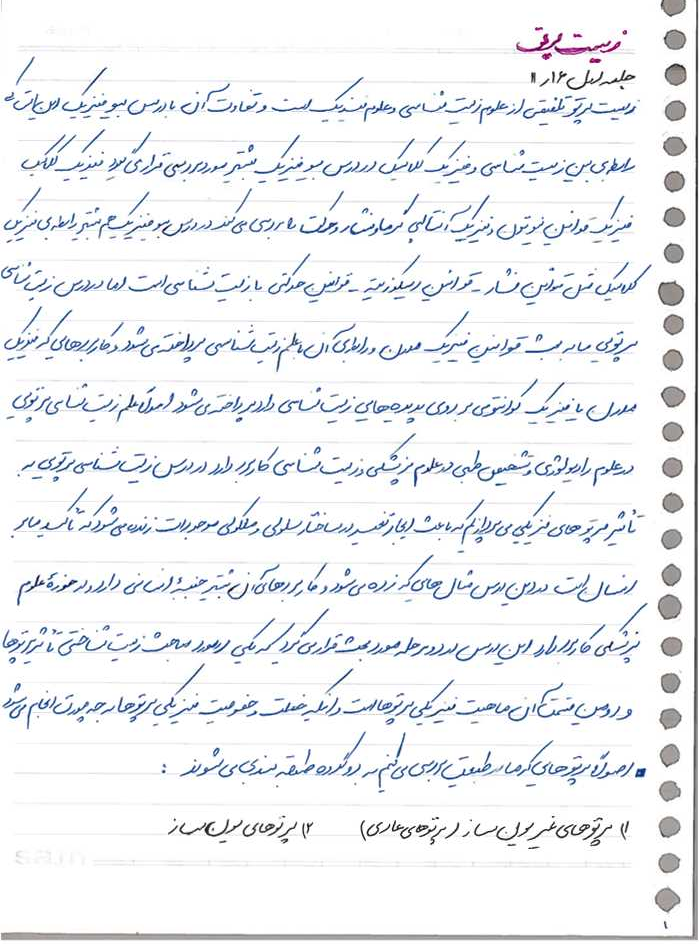 زیست پرتو
جلسه اول ۱۶ار۱۱
زیست پرتو تلفیقی از علوم زیست شناسی و علوم فیزیک است و تفاوت آن با درس بیوفیزیک این است که
رابطه‌ی بین زیست شناسی و فیزیک کلاسیک در درس بیوفیزیک بیشتر مورد بررسی قرار می گیرد فیزیک کلاسیک
فیزیک قوانین نیوتون و فیزیک آنتالپی گرما و فشار و حرکت را بررسی می کند در درس بیوفیزیک هم بیشتر رابطه ی فیزیک
کلاسیک مثل قوانین فشار - قوانین ویسکوزیته - قوانین حرکتی با زیست شناسی است اما در درس زیست شناسی
پرتویی ما به بحث قوانین فیزیک مدرن و رابطه ی آن با علم زیست شناسی پرداخته می شود و کاربردهایی که فیزیک
مدرن یا فیزیک کوانتومی بر روی پدیده هایی زیست شناسی دارد پرداخته می شود اصولاً علم زیست شناسی پرتویی
در علوم رادیولوژی و تشخیص طبی در علوم پزشکی و زیست شناسی کاربرد دارد در درس زیست شناسی پرتویی به
تأثیر پرتو های فیزیکی می پردازیم که باعث ایجار تغییر در ساختار سلولی و ملکولی موجودات زنده می شود که تأکید ما بر
انسان است در این درس مثال هایی که زده می شود و کاربردهای آن بیشتر جنبهٔ انسانی دارد و در حوزهٔ علوم
پزشکی کاربرد دارد این درس در دو مرحله مورد بحث قرار می گیرد که یکی در مورد مباحث زیست شناختی تأثیر پرتوها
و دومین قسمت آن ماهیت فیزیکی پرتوها است و اینکه خصلت و خصوصیت فیزیکی پرتوها به چه صورت انجام می شود
▪ اصولاً پرتوهایی که ما در طبیعت بررسی می کنیم به دو گروه طبقه بندی می شوند :
۱) پرتوهای غیر یون ساز (پرتوهای عادی) ۲) پرتوهای یون ساز
۱